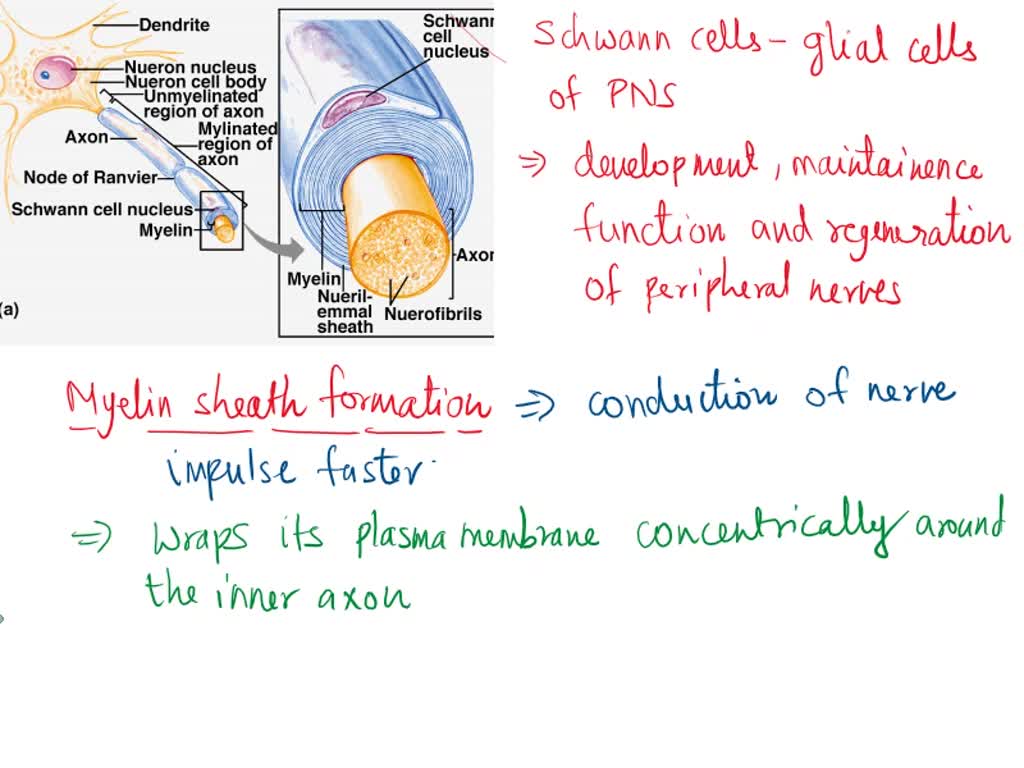 Dendrite
Nueron nucleus
Nueron cell body
Unmyelinated
region of axon
Axon
Mylinated
region of
axon
Node of Ranvier
Schwann cell nucleus
Myelin
(a)
Schwann
cell
nucleus
Axon
Myelin
Nueril-
emmal
sheath
Nuerofibrils
Schwann cells - glial cells
of PNS
⇒ development, maintainence
function and regeneration
of peripheral nerves
Myelin sheath formation ⇒ conduction of nerve
impulse faster.
⇒ wraps its plasma membrane concentrically around
the inner axon